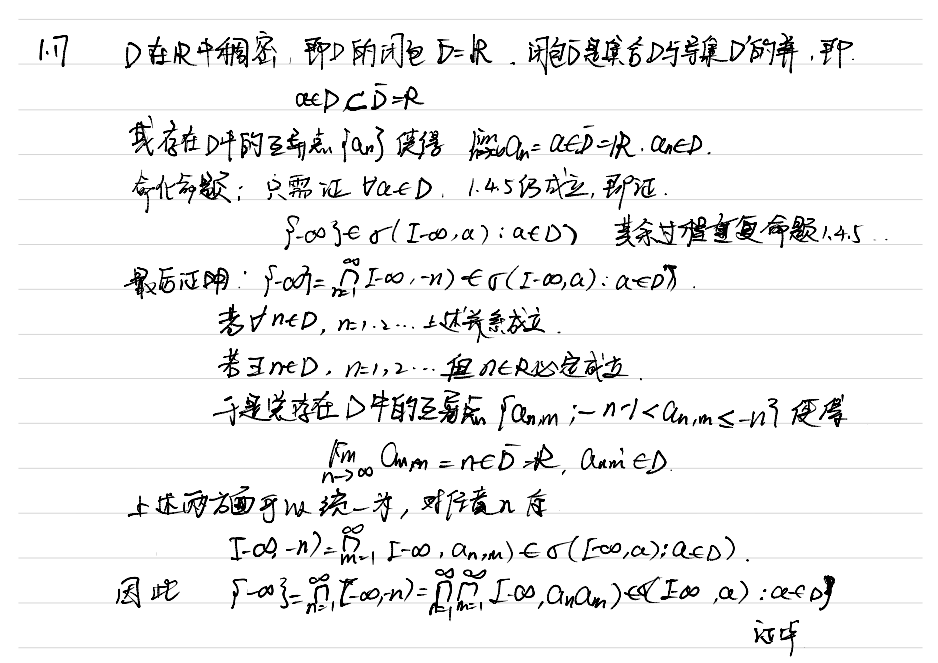 1.17 D在R中稠密，即D的闭包 D̄=R．闭包D̄是集合D与导集D'的并，即
a∈D⊂D̄=R
或存在D中的互异点{aₙ}使得 lim aₙ=a∈D̄=R. aₙ∈D.
命题：只需证 ∀a∈D. 1.4.5仍成立，即证.
{-∞}∈σ([-∞,a):a∈D) 其余过程重复命题1.4.5..
最后证明：{-∞}=⋂_{n=1}^{∞}[-∞,-n)∈σ([-∞,a):a∈D).
若∀n∈D, n=1.2...上述关系成立.
若∃n∈D, n=1,2...但n∈R必定成立.
于是总存在D中的互异点{aₙ,ₘ;-n-1<aₙ,ₘ≤-n}使得
lim_{n→∞} aₙ,ₘ=n∈D̄=R, aₙ,ₘ∈D.
上述两方面可以统一为，对任意n有
[-∞,-n)=⋂_{m=1}^{∞}[-∞,aₙ,ₘ)∈σ([-∞,a):a∈D).
因此 {-∞}=⋂_{n=1}^{∞}[-∞,-n)=⋂_{n=1}^{∞}⋂_{m=1}^{∞}[-∞,aₙaₘ)∈σ([-∞,a):a∈D)
证毕